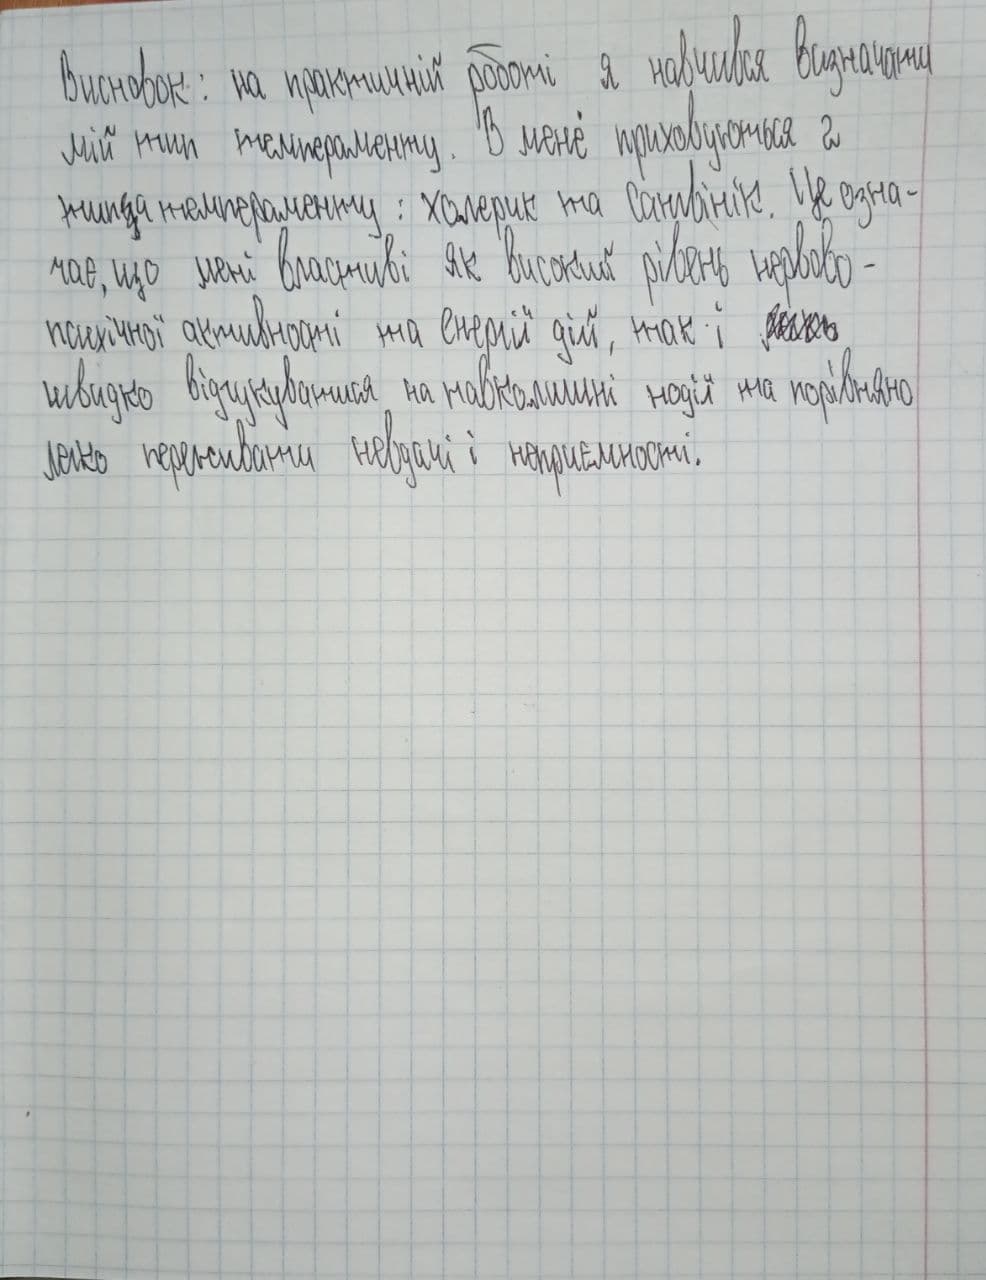 Висновок: на практичній роботі я навчився визначати
мій тип темпераменту. В мене приховуються 2
типа темпераменту: холерик та Сангвінік. Це озна-
чає, що мені властиві як високий рівень нервово-
психічної активності та енергій дій, так і
швидко відгукуватися на навколишні події та порівняно
легко переживати невдачі і неприємності.